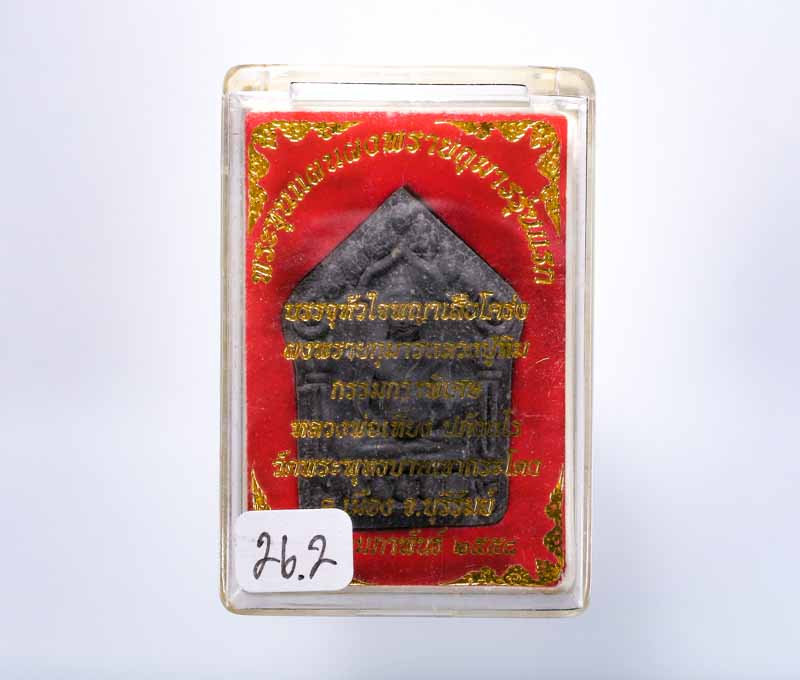 พระขุนแผนผงพรายกุมารรุ่นแรก
บรรจุหัวใจพญาเสือโคร่ง
ผงพรายกุมารหลวงปู่ทิม
กรรมการพิเศษ
หลวงพ่อเที่ยง
วัดพระพุทธบาทเขากระโดง
อ.เมือง จ.บุรีรัมย์
๒๕๕๔
26.2